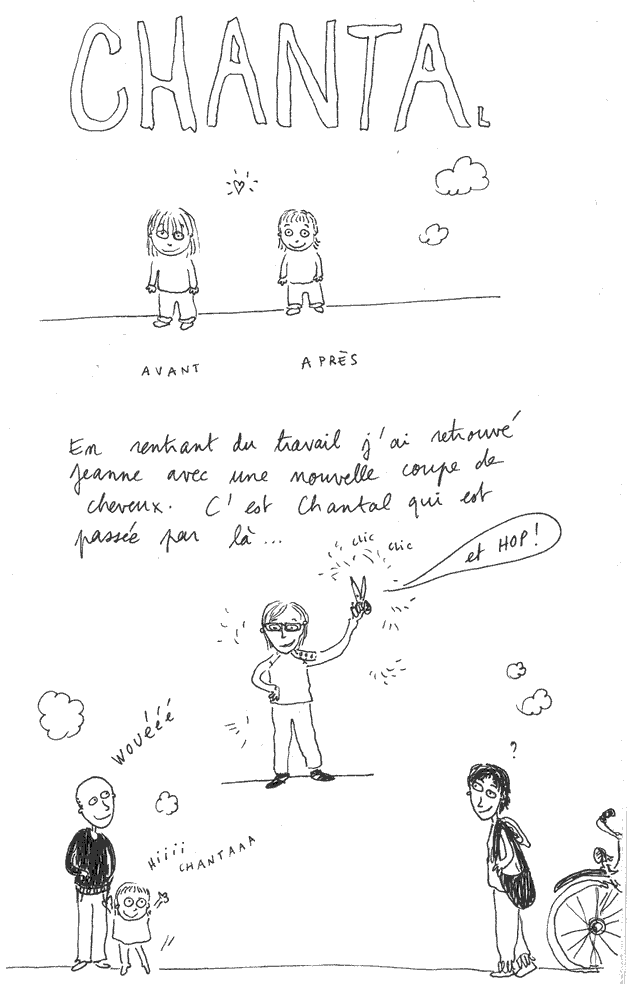 CHANTAL
AVANT
APRÈS
En rentrant du travail j'ai retrouvé
Jeanne avec une nouvelle coupe de
cheveux. C'est Chantal qui est
passée par là...
clic
clic
et HOP!
WOUÉÉÉ
?
Hiiii
CHANTAAA